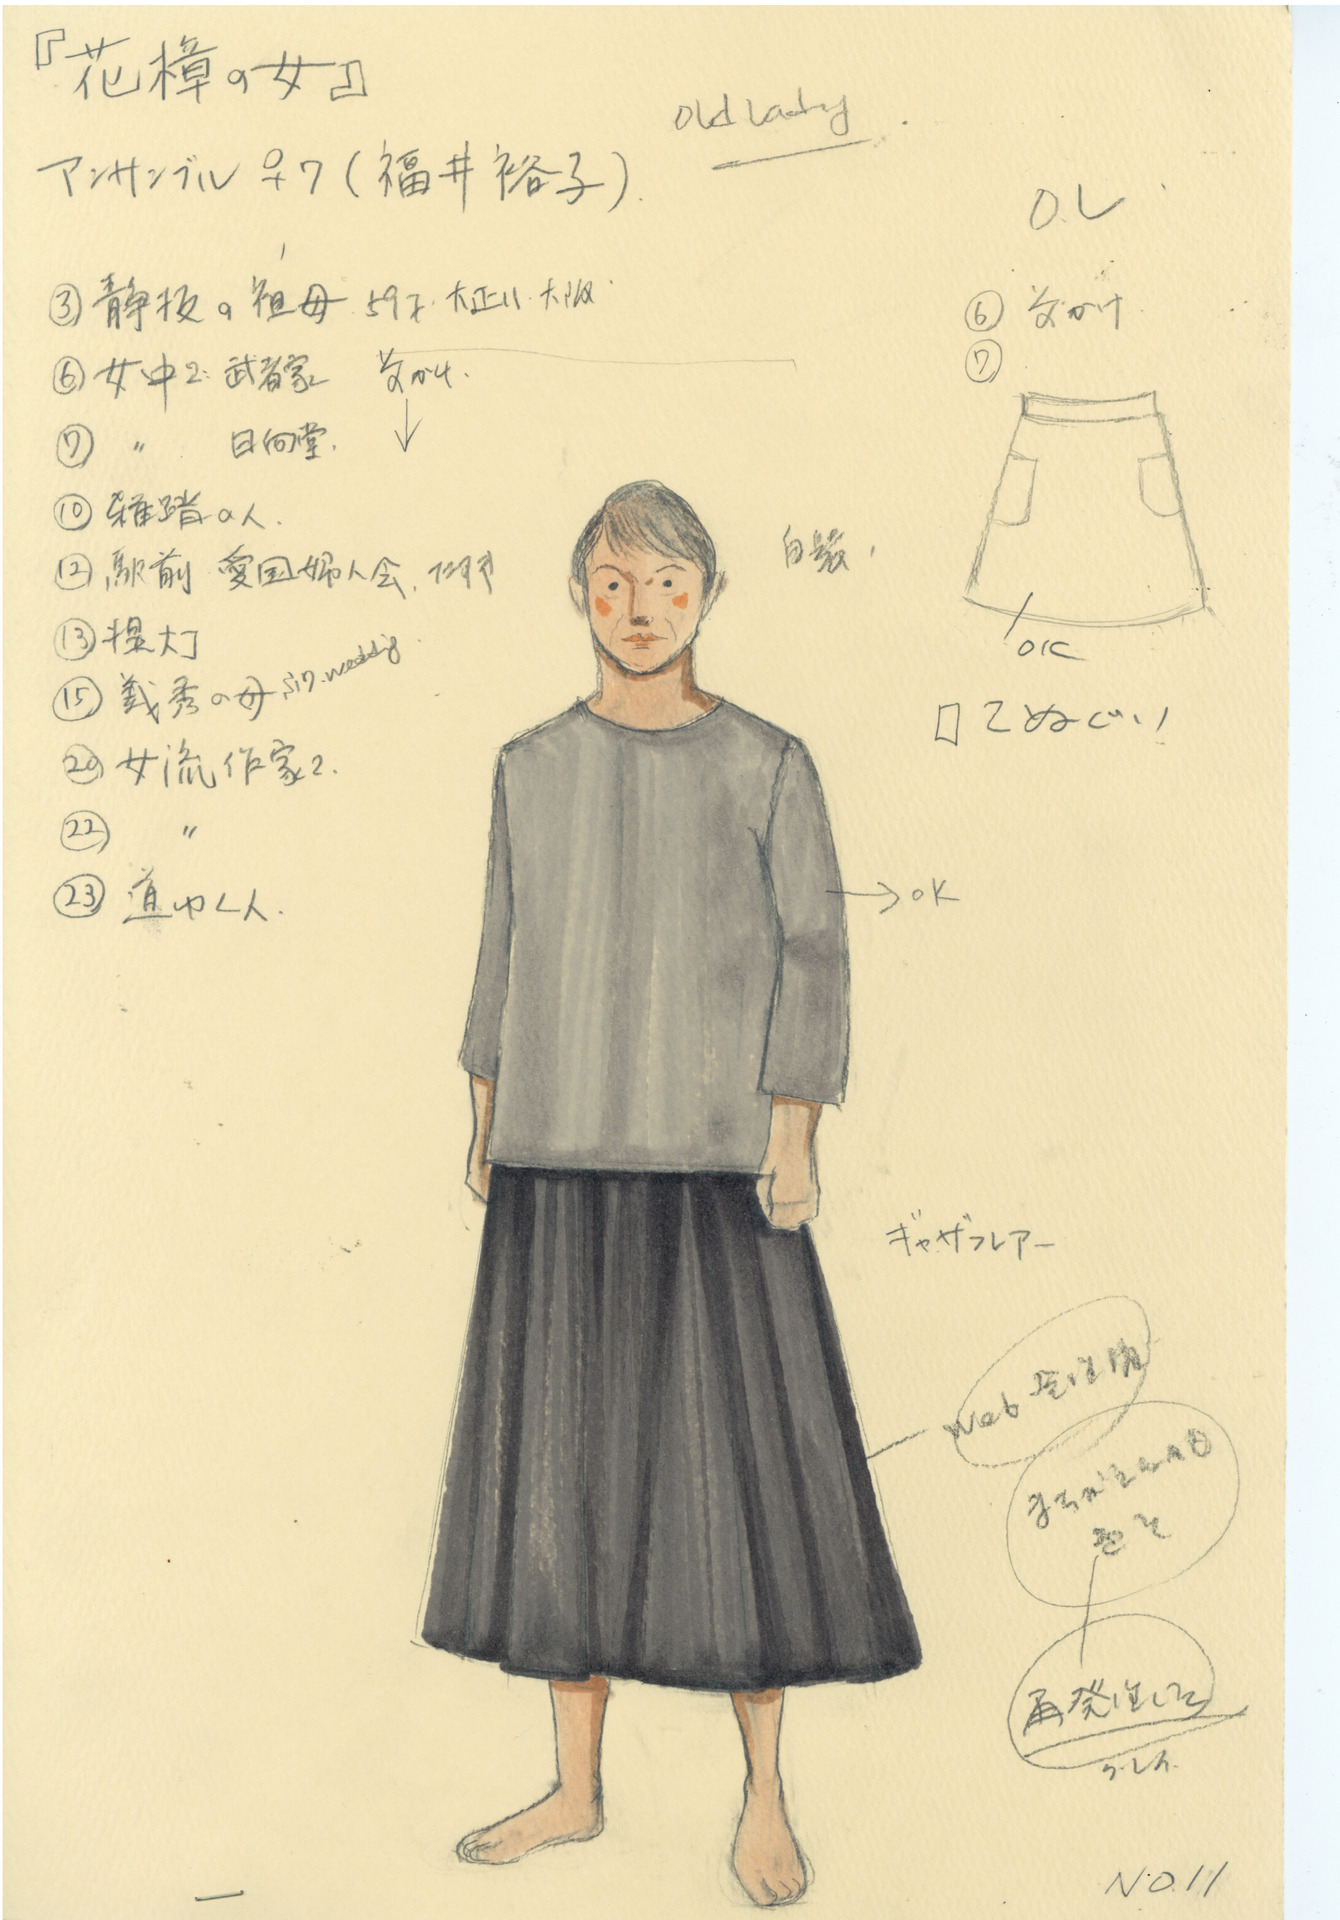 『花樟の女』
アンサンブル ♀7 (福井裕子)
old lady
③ 静枝の祖母 59才 大正11 大阪
⑥ 女中2 武者家 前かけ
⑦ 〃 日向堂
⑩ 雑踏の人
⑫ 駅前 愛国婦人会
⑬ 提灯
⑮ 義秀の母 S17. wedding
⑳ 女流作家2
㉒ 〃
㉓ 道ゆく人
O.L
⑥ 前かけ
⑦
OK
てぬぐい
自髪
→OK
ギャザフレアー
Web 発注済
再発注して
NO.11